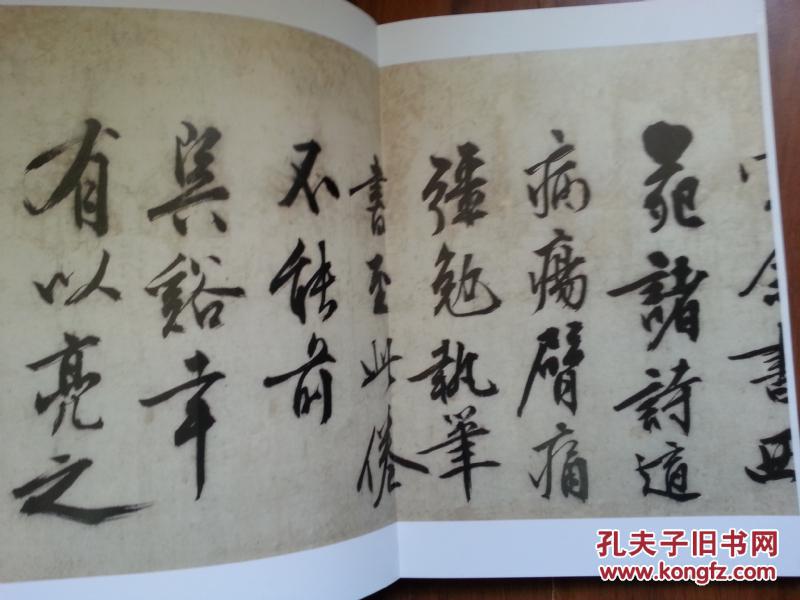 余書西
苑諸詩適
病瘍臂痛
彊勉執筆
書至此倦
不能前
吳谿幸
有以亮之
孔夫子旧书网
www.kongfz.com